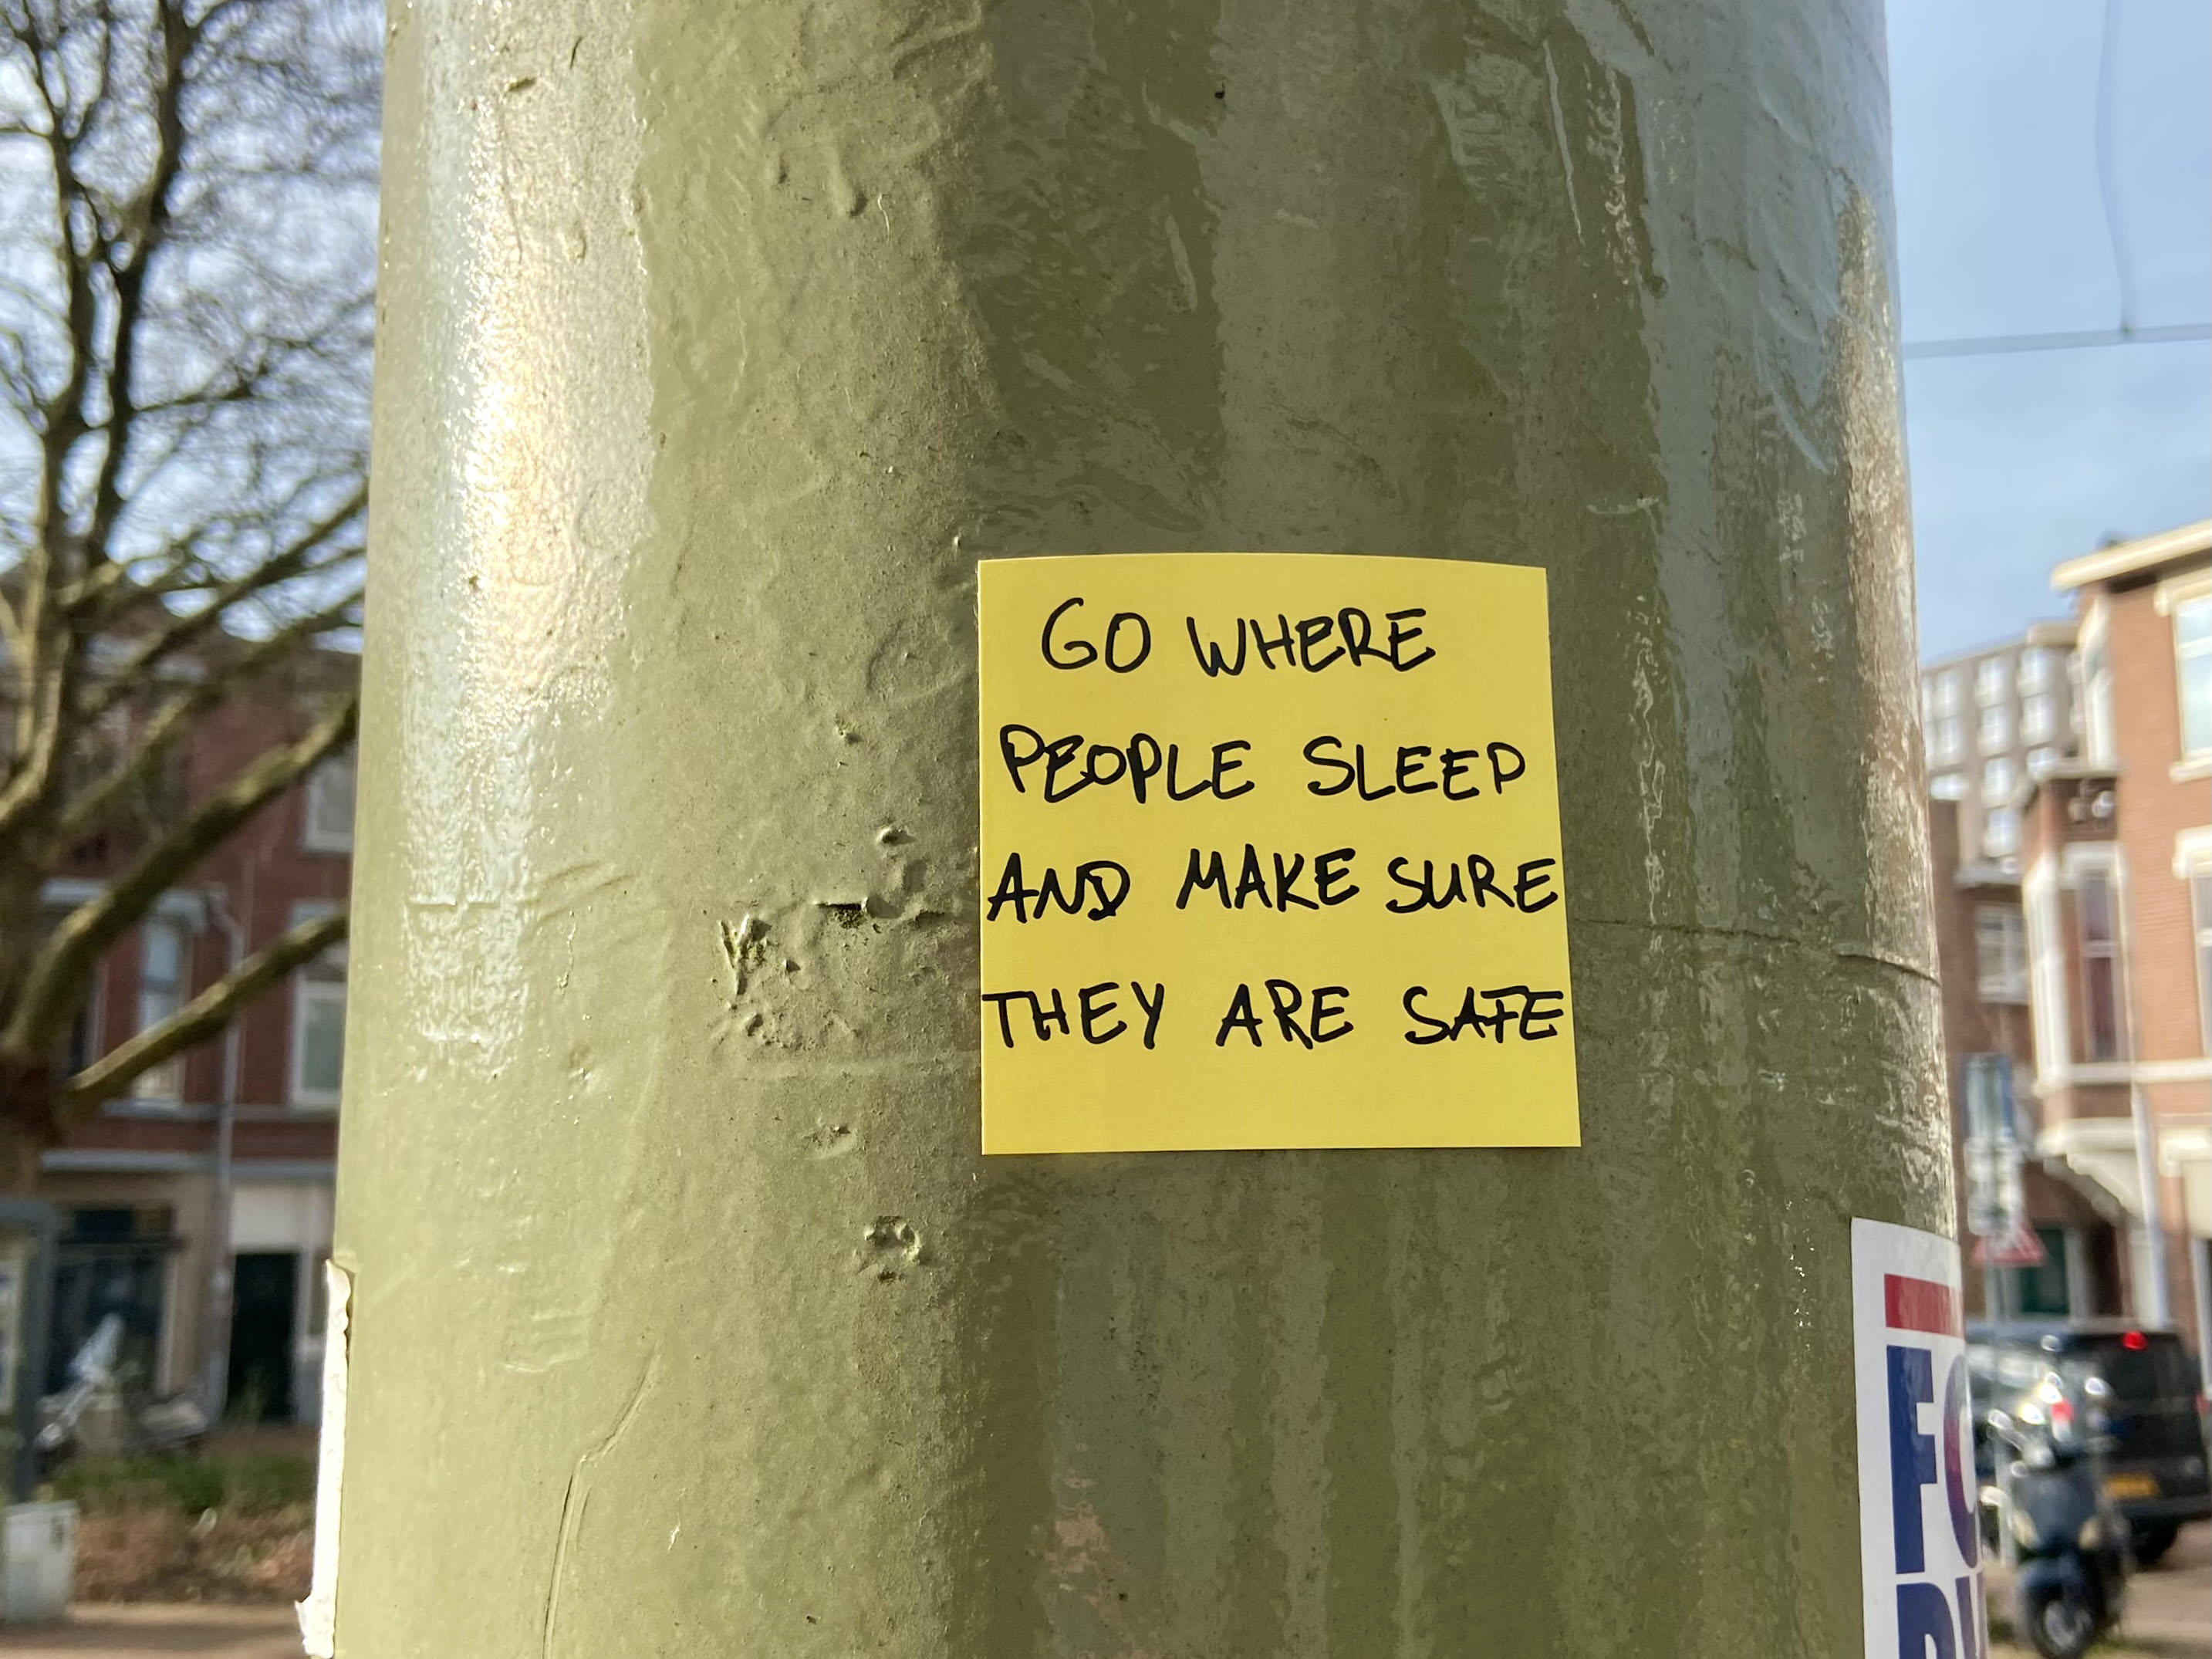 GO WHERE
PEOPLE SLEEP
AND MAKE SURE
THEY ARE SAFE